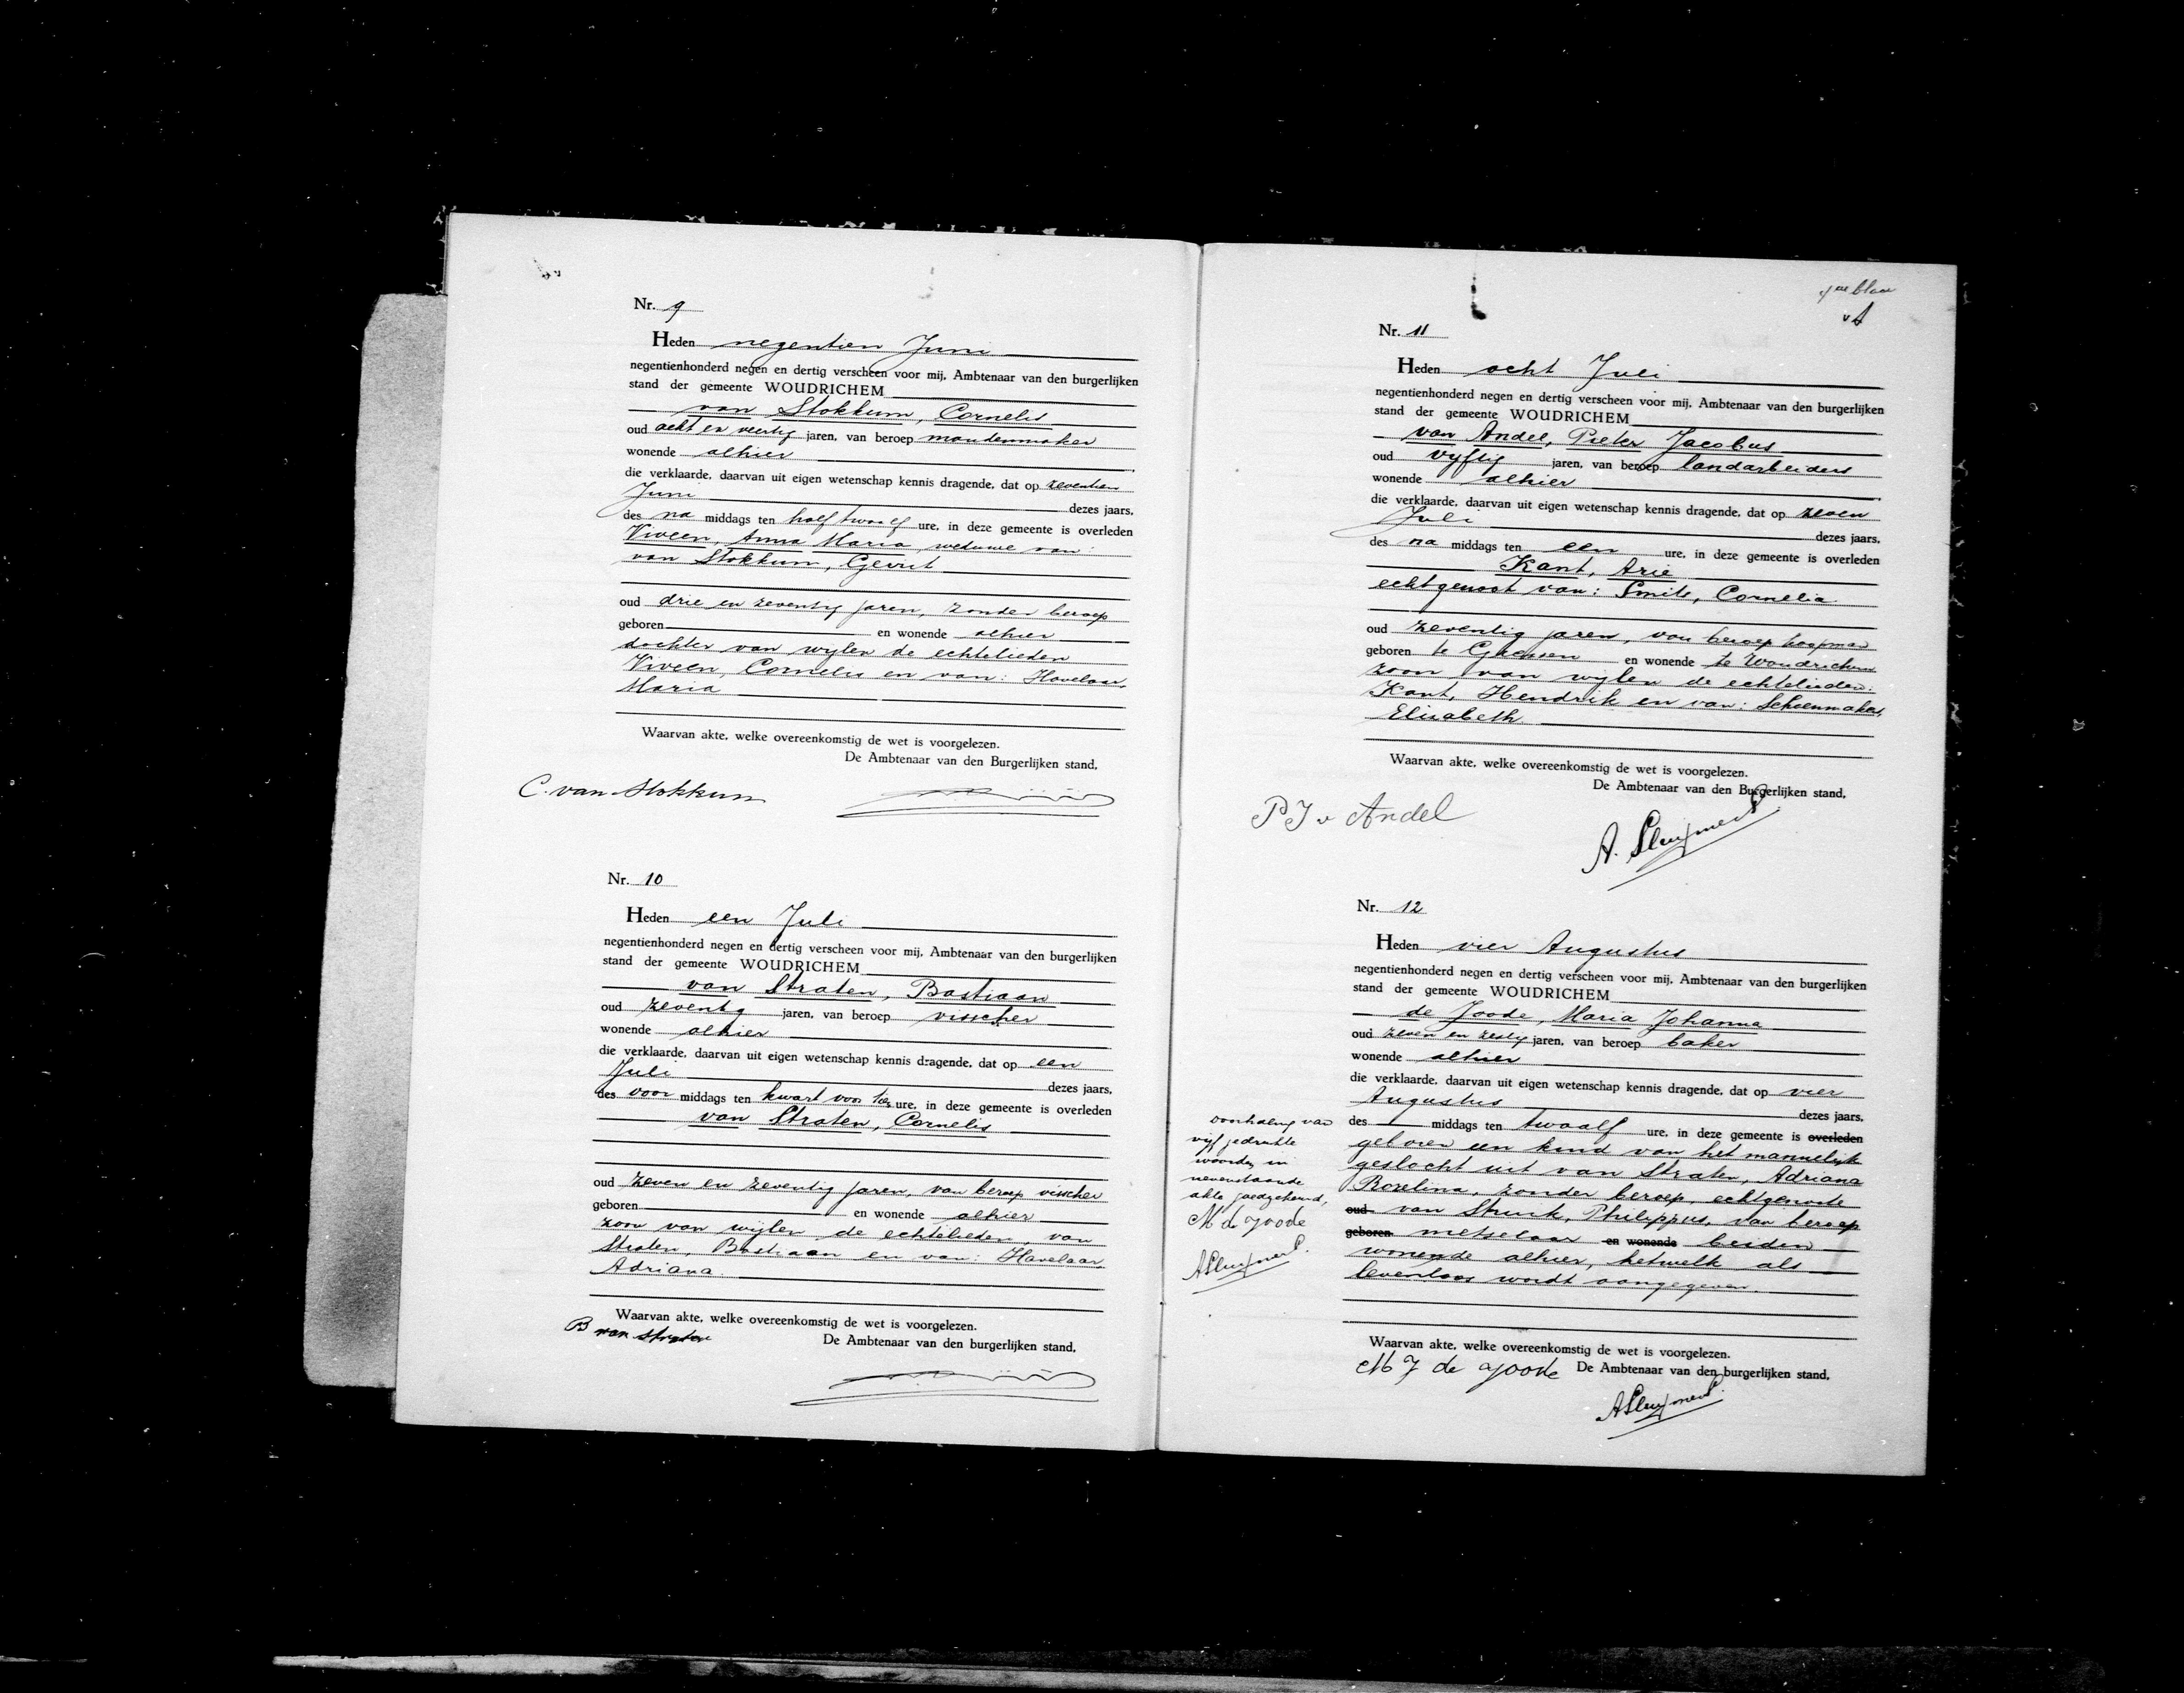 Nr. 9
Heden negentien Juni
negentienhonderd negen en dertig verscheen voor mij, Ambtenaar van den burgerlijken
stand der gemeente WOUDRICHEM
van Stokkum, Cornelis
oud acht en veertig jaren, van beroep mandenmaker
wonende alhier
die verklaarde, daarvan uit eigen wetenschap kennis dragende, dat op zeventien
Juni dezes jaars,
des na middags ten half twaalf ure, in deze gemeente is overleden
Viveen, Anna Maria, weduwe van
van Stokkum, Gerrit
oud drie en zeventig jaren, zonder beroep
geboren en wonende alhier
dochter van wijlen de echtelieden
Viveen, Cornelis en van: Havelaar,
Maria
Waarvan akte, welke overeenkomstig de wet is voorgelezen.
De Ambtenaar van den Burgerlijken stand,
C. van Stokkum
Nr. 10
Heden een Juli
negentienhonderd negen en dertig verscheen voor mij, Ambtenaar van den burgerlijken
stand der gemeente WOUDRICHEM
van Straten, Bastiaan
oud zeventig jaren, van beroep visscher
wonende alhier
die verklaarde, daarvan uit eigen wetenschap kennis dragende, dat op een
Juli dezes jaars,
des voor middags ten kwart voor tien ure, in deze gemeente is overleden
van Straten, Cornelis
oud zeven en zeventig jaren, van beroep visscher
geboren en wonende alhier
zoon van wijlen de echtelieden, van
Straten, Bastiaan en van: Havelaar,
Adriana
Waarvan akte, welke overeenkomstig de wet is voorgelezen.
B van Straten De Ambtenaar van den burgerlijken stand,
Nr. 11
Heden acht Juli
negentienhonderd negen en dertig verscheen voor mij, Ambtenaar van den burgerlijken
stand der gemeente WOUDRICHEM
van Andel, Pieter Jacobus
oud vyftig jaren, van beroep landarbeider
wonende alhier
die verklaarde, daarvan uit eigen wetenschap kennis dragende, dat op zeven
Juli dezes jaars,
des na middags ten een ure, in deze gemeente is overleden
Kant, Arie
echtgenoot van: Smits, Cornelia
oud zeventig jaren, van beroep koopman
geboren te Giessen en wonende te Woudrichem
zoon van wijlen de echtelieden:
Kant, Hendrik en van: Schoenmaker,
Elisabeth
Waarvan akte, welke overeenkomstig de wet is voorgelezen.
De Ambtenaar van den Burgerlijken stand,
P J v Andel
Nr. 12
Heden vier Augustus
negentienhonderd negen en dertig verscheen voor mij, Ambtenaar van den burgerlijken
stand der gemeente WOUDRICHEM
de Joode, Maria Johanna
oud zeven en zestig jaren, van beroep baker
wonende alhier
die verklaarde, daarvan uit eigen wetenschap kennis dragende, dat op vier
Augustus dezes jaars,
des middags ten twaalf ure, in deze gemeente is overleden
geboren een kind van het mannelijk
geslacht uit van Straten, Adriana
Rozelina, zonder beroep, echtgenoote
oud van Struik, Philippus, van beroep
geboren metselaar en wonende beiden
wonende alhier, hetwelk als
levenloos wordt aangegeven.
doorhaling van
vijf gedrukte
woorden in
nevenstaande
akte goedgekeurd,
M de Joode
Waarvan akte, welke overeenkomstig de wet is voorgelezen.
M J de Joode De Ambtenaar van den burgerlijken stand,